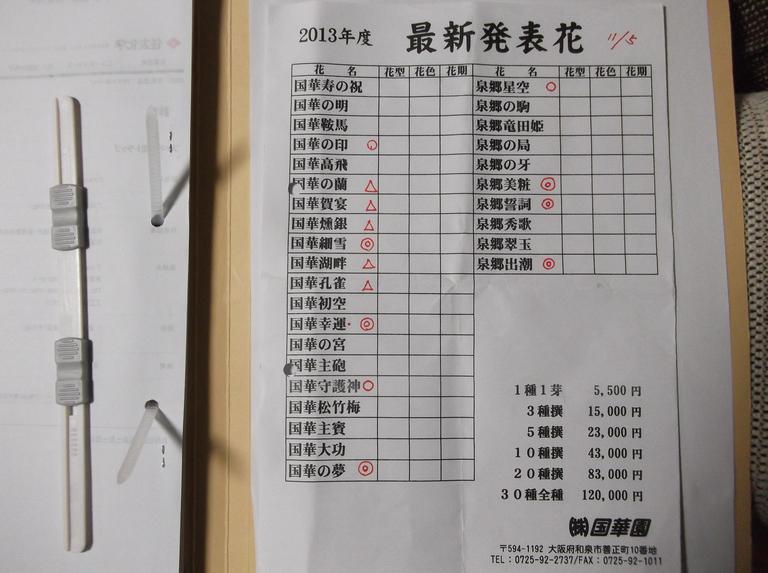 2013年度 最新発表花 11/5
花 名 花型 花色 花期
国華寿の祝
国華の明
国華鞍馬
国華の印 ○
国華高飛
国華の蘭 △
国華賀宴 △
国華燻銀 △
国華細雪 ◎
国華湖畔 △
国華孔雀 △
国華初空
国華幸運 ◎
国華の宮
国華主砲
国華守護神 ○
国華松竹梅
国華主賓
国華大功
国華の夢 ◎
花 名 花型 花色 花期
泉郷星空 ○
泉郷の駒
泉郷竜田姫
泉郷の局
泉郷の牙
泉郷美粧 ◎
泉郷誓詞 ◎
泉郷秀歌
泉郷翠玉
泉郷出潮 ◎
1種1芽 5,500円
3種撰 15,000円
5種撰 23,000円
10種撰 43,000円
20種撰 83,000円
30種全種 120,000円
㈱国華園
〒594-1192 大阪府和泉市善正町10番地
TEL:0725-92-2737/FAX:0725-92-1011